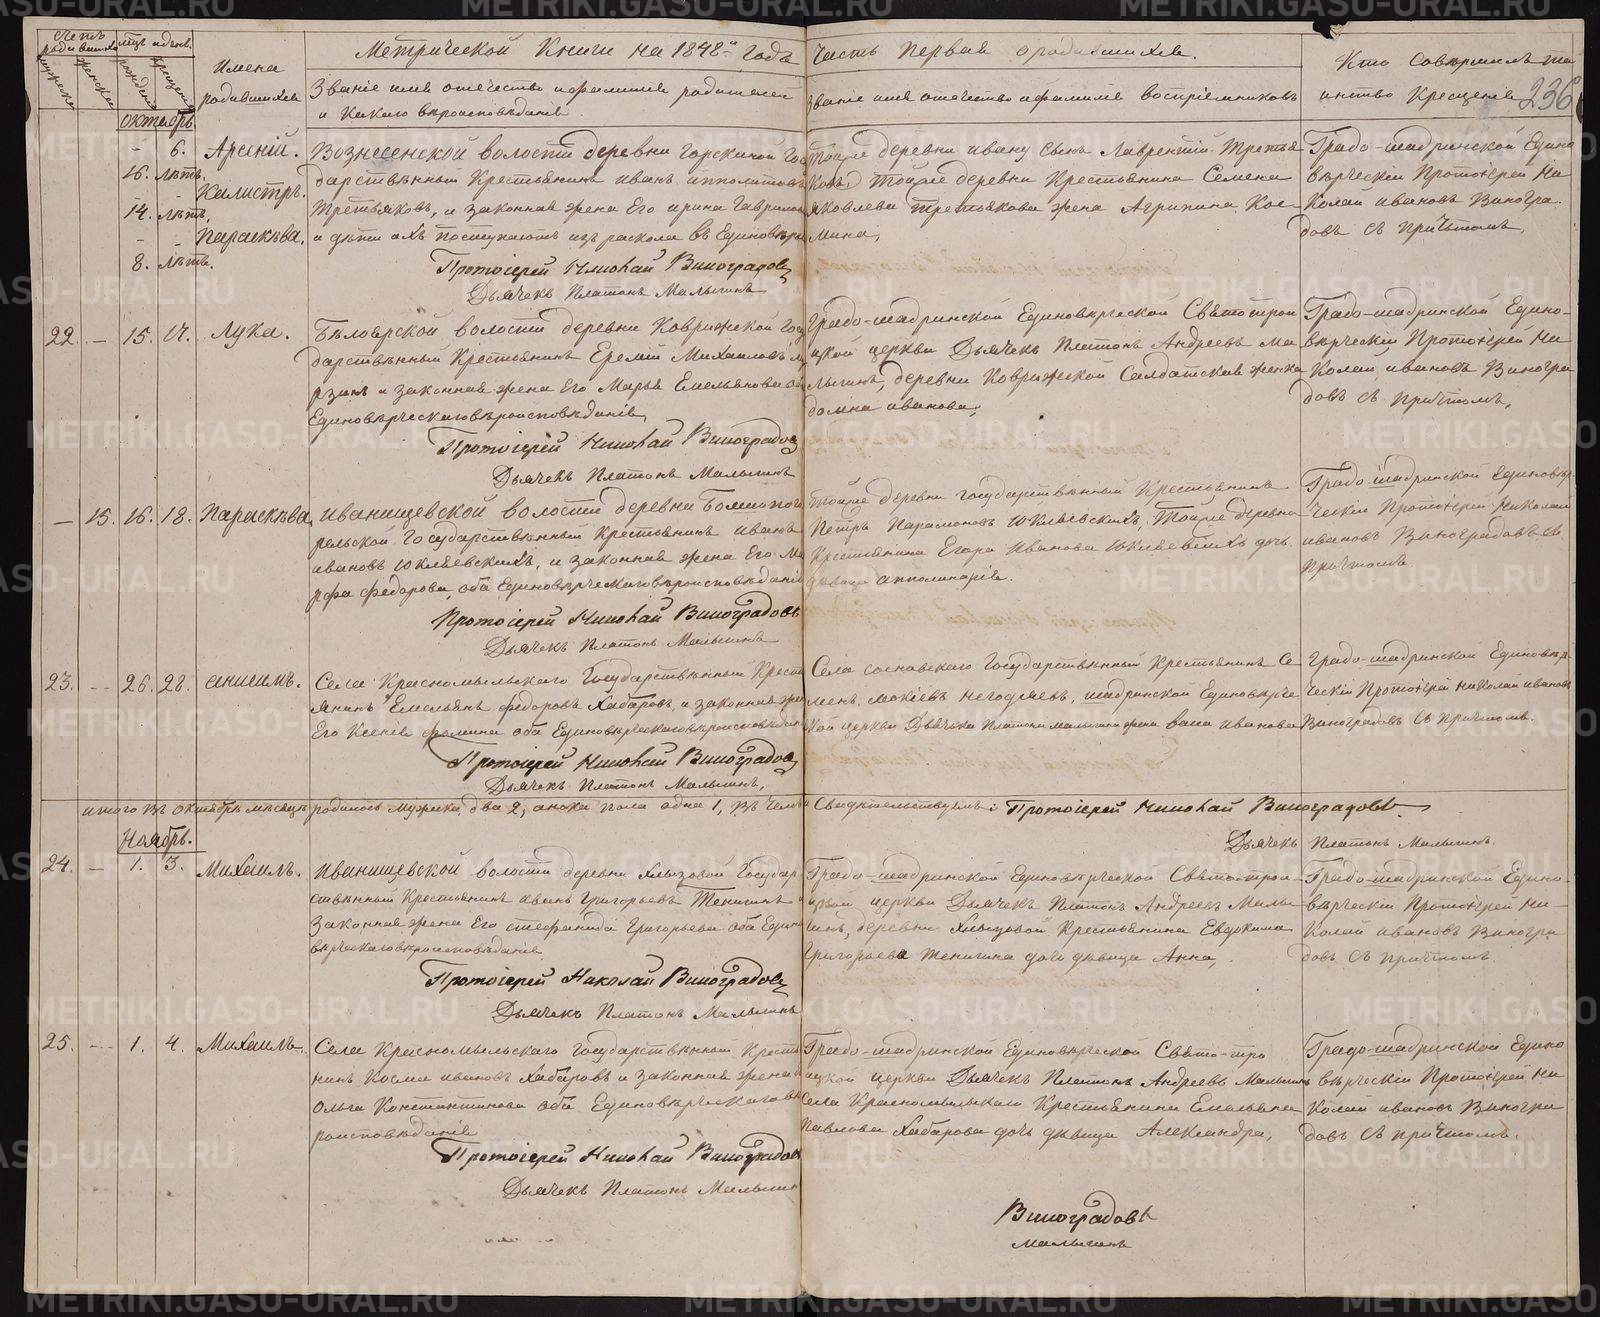 Счетъ родившихся
мужеска
женска
мѣсяцъ и день
рожденія
крещенія
Имена родившихся
Метрической Книги на 1848й годъ
Часть первая о родившихся.
Званіе имя отечество и фамилія родителей
и какаго вѣроисповѣданія
Званіе имя отечество и фамилія воспріемниковъ
Кто совершалъ та
инство Крещенія
236
Октябрь
- 6. Арсеній.
16. лѣтъ.
- - Калистръ.
14. лѣтъ.
- - Параскѣва.
8. лѣтъ.
Вознесенской волости деревни Горскиной Госу
дарственный Крестьянинъ Иванъ Ипполитовъ
Третьяковъ, и законная жена Его Ирина Гаврилова
и дѣти ихъ поступаютъ изъ раскола въ Единовѣріе
Протоіерей Николай Виноградовъ
Дьячекъ Платонъ Малыгинъ
Тойже деревни Ивану сынъ Лаврентій Третья
ковъ, тойже деревни Крестьянина Семена
Яковлева Третьякова жена Агрипина Кос
мина,
Градо-шадринской Едино
вѣрческій Протоіерей Ни
колай Ивановъ Виногра
довъ съ причтомъ,
22. - 15. 17. Лука.
Бѣлоярской волости деревни Коврижской Госу
дарственный Крестьянинъ Еремій Михайловъ
рзинъ и законная жена Его Марья Емельянова оба
Единовѣрческаго вѣроисповѣданія,
Протоіерей Николай Виноградовъ
Дьячекъ Платонъ Малыгинъ
Градо-шадринской Единовѣрческой Святотрои
цкой церкви Дьячекъ Платонъ Андреевъ Ма
лыгинъ, деревни Коврижской Салдатская женка
Домна Иванова,
Градо-шадринской Едино-
вѣрческій Протоіерей Ни
колай Ивановъ Виногра
довъ съ причтомъ,
- 15. 16. 18. Параскѣва
Иванищевской волости деревни
рельской Государственный Крестьянинъ Иванъ
Ивановъ Юкляевскихъ, и законная жена Его Ма
рфа Федорова, оба Единовѣрческаго вѣроисповѣданія
Протоіерей Николай Виноградовъ
Дьячекъ Платонъ Малыгинъ
Тойже деревни государственный Крестьянинъ
Петръ Парамоновъ Юкляевскихъ, тойже деревни
Крестьянина Егора Иванова Юкляевскихъ дочь
дѣвица Апполинарія.
Градо-шадринской Единовѣр
ческій Протоіерей Николай
Ивановъ Виноградовъ съ
причтомъ
23. - 26. 28. Анисимъ.
Села Красномыльскаго Государственный Кресть
янинъ Емельянъ Федоровъ Хабаровъ, и законная жена
Его Ксенія Фомина оба Единовѣрческаго вѣроисповѣданія
Протоіерей Николай Виноградовъ
Дьячекъ Платонъ Малыгинъ,
Села Сосновскаго Государственный Крестьянинъ Се
менъ Мокіевъ Негодяевъ, шадринской Единовѣрчес
кой церкви Дьячька Платона Малыгина жена Васса Иванова
Градо-шадринской Единовѣр
ческій Протоіерей Николай Ивановъ
Виноградовъ съ причтомъ.
Итого въ октябрѣ мѣсяцѣ родилось мужска два 2, а женска пола одна 1, въ чемъ и свидѣтельствуемъ: Протоіерей Николай Виноградовъ
Дьячекъ Платонъ Малыгинъ.
Ноябрь.
24. - 1. 3. Михаилъ.
Иванищевской волости деревни Хлызовой Государ
ственный Крестьянинъ Иванъ Григорьевъ Тенигинъ и
законная жена Его Стефанида Григорьева оба Едино
вѣрческаго вѣроисповѣданія
Протоіерей Николай Виноградовъ
Дьячекъ Платонъ Малыгинъ
Градо-шадринской Единовѣрческой Свято-трои
цкой церкви Дьячекъ Платонъ Андреевъ Малы
гинъ, деревни Хлызовой Крестьянина Евдокима
Григорьева Тенигина дочь дѣвица Анна,
Градо-шадринской Едино-
вѣрческій Протоіерей Ни-
колай Ивановъ Виногра
довъ съ причтомъ
25. - 1. 4. Михаилъ.
Села Красномыльскаго Государственный Крестья
нинъ Косма Ивановъ Хабаровъ и законная жена Его
Ольга Константинова оба Единовѣрческаго вѣ
роисповѣданія
Протоіерей Николай Виноградовъ
Дьячекъ Платонъ Малыгинъ
Градо-шадринской Единовѣрческой Свято-тро
ицкой церкви Дьячекъ Платонъ Андреевъ Малыгинъ
Села Красномыльскаго Крестьянина Емельяна
Павлова Хабарова дочь дѣвица Александра,
Градо-шадринской Едино
вѣрческій Протоіерей Ни
колай Ивановъ Виногра
довъ съ причтомъ.
Виноградовъ
Малыгинъ
METRIKI.GASO-URAL.RU